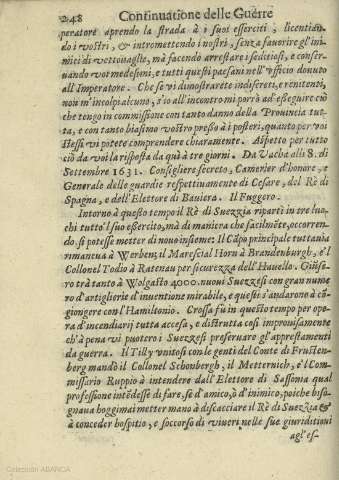 248 Continuatione delle Guerre
peratore aprendo la strada à i suoi esserciti, licentian-
do i vostri, & intromettendo i nostri, senza fauorire gl'ini-
mici di vettouaglie, mà facendo arrestare i seditiosi, e conser-
uando voi medesimi, e tutti questi paesani nell'vfficio douuto
all'Imperatore. Che se vi dimostrarete indiferẽti, e renitenti,
non m'incolpi alcuno, s'io all'incontro mi porrò ad eseguir ciò
che tengo in commissione con tanto danno della Prouincia tut-
ta, e con tanto biasimo vostro presso à i posteri, quanto per voi
stessi vi potete comprendere chiaramente. Aspetto per tutto
ciò da voi la risposta da quà à tre giorni. Da Vacha alli 8. di
Settembre 1631. Consigliere secreto, Camerier d'honore, e
Generale delle guardie respettiuamente di Cesare, del Rè di
Spagna, e dell'Elettore di Bauiera. Il Fuggero.
Intorno à questo tempo il Rè di Suezzia ripartì in tre luo-
chi tutto 'l suo essercito, mà di maniera che facilmẽte, occorren-
do, si potesse metter di nouo insieme: Il Cãpo principale tuttauia
rimaneua à Werben; il Marescial Horn à Brandenburgh, e 'l
Collonel Todio à Ratenau per sicurezza dell'Hauello. Giũse-
ro trà tanto à Wolgasto 4000. nuoui Suezzesi con gran nume
ro d'artiglierie d'inuentione mirabile, e questi s'andarono à cõ-
giongere con l'Hamiltonio. Crossa fù in questo tempo per ope-
ra d'incendiarij tutta accesa, e distrutta così improuisamente
ch'à pena vi puotero i Suezzesi preseruare gl'apprestamenti
da guerra. Il Tilly vnitosi con le genti del Conte di Frusten-
berg mandò il Collonel Schonbergh, il Metternich, e 'l Com-
missario Ruppio à intendere dall'Elettore di Sassonia qual
professione intẽdesse di fare, s'è d'amico, ò d'inimico, poiche biso-
gnaua hoggimai metter mano à discacciare il Rè di Suezzia &
à conceder hospitio, e soccorso di viueri nelle sue giuriditioni
agl'es-
Colección ABANCA